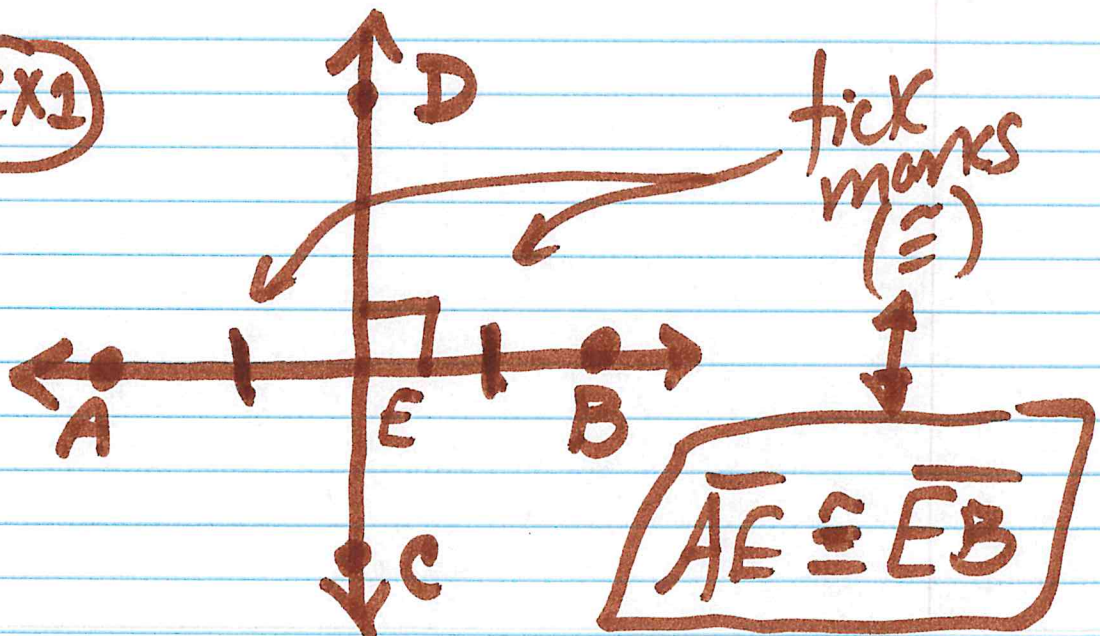 EX1
D
tick
marks
(≅)
A E B
AE ≅ EB
C